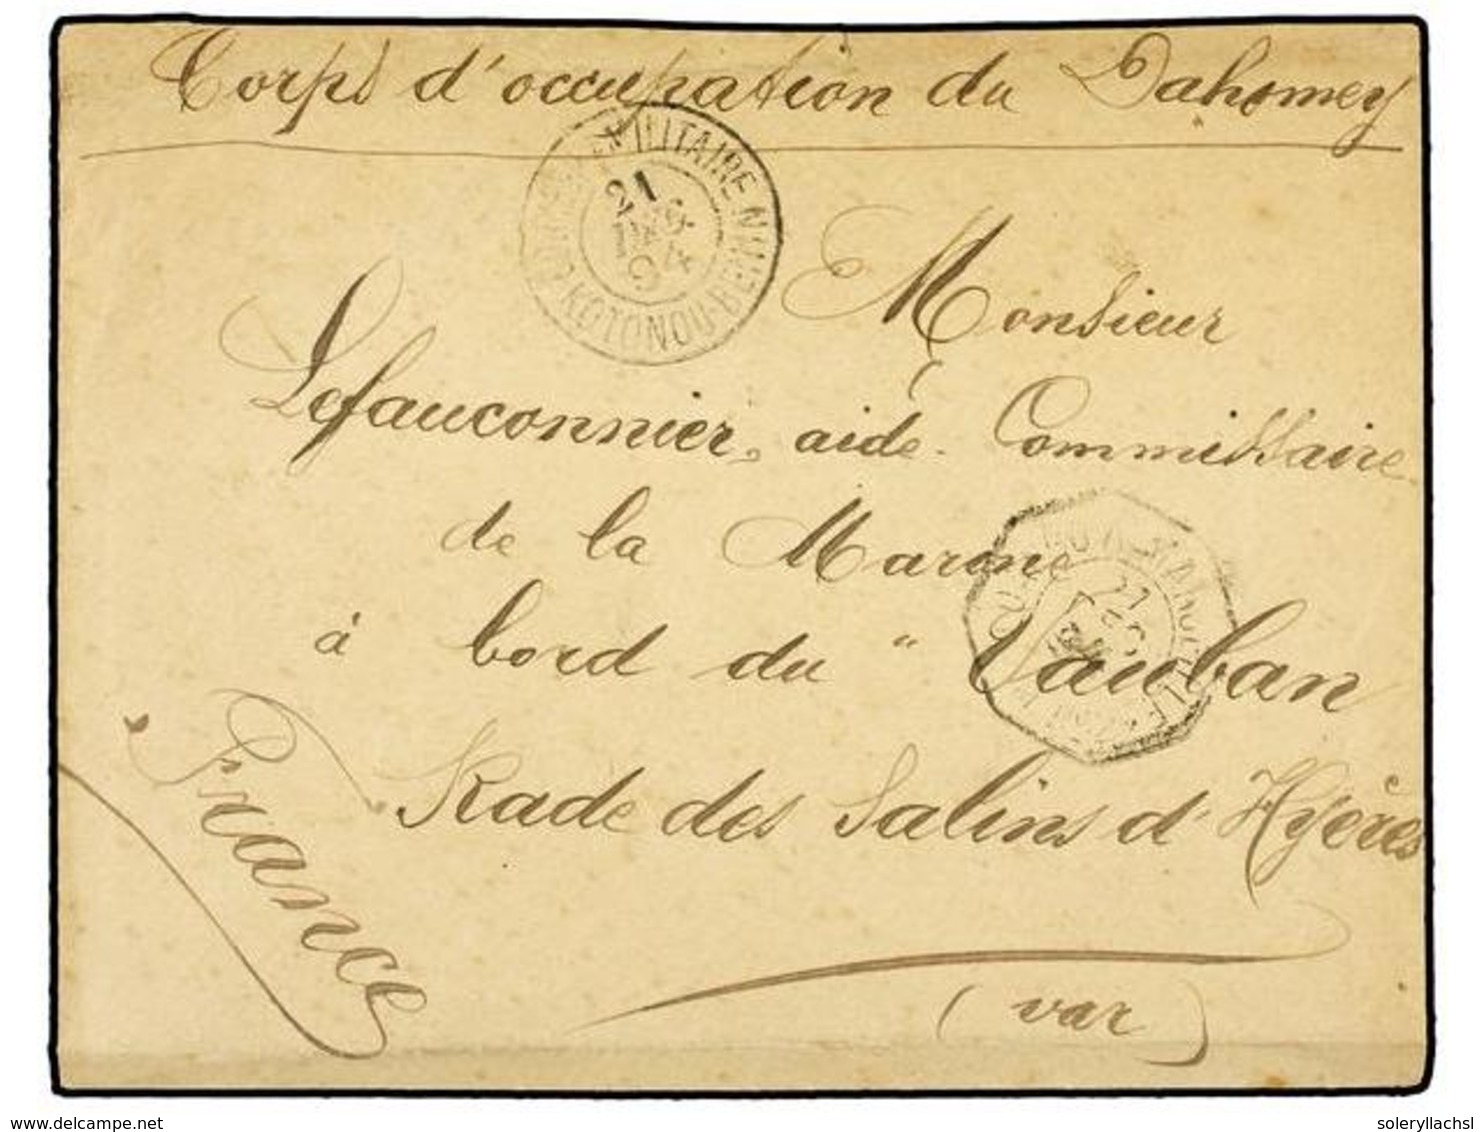 Corps d'occupation du Dahomey
MILITAIRE
BENIN
KOTONOU
21
94
Monsieur
Lefauconnier, aide-Commissaire
de la Marine
à bord du "Vauban
Rade des Salins d'Hyères
(var)
France
www.delcampe.net
soleryllachsl